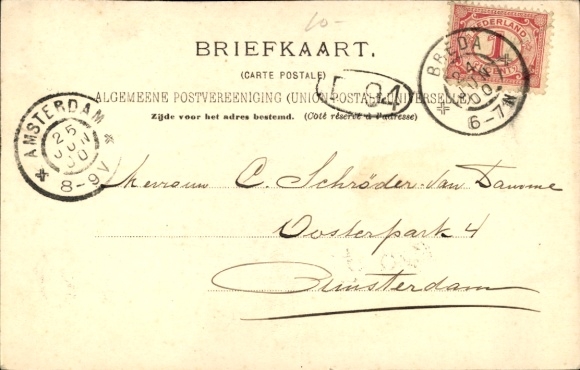 10-
BRIEFKAART.
(CARTE POSTALE)
ALGEMEENE POSTVEREENIGING (UNION POSTALE UNIVERSELLE)
Zijde voor het adres bestemd. (Coté réservé à l'adresse)
NEDERLAND
1
BREDA
24 JUN 00
6-7N
AMSTERDAM
25
JUN
00
8-9V
Mevrouw C. Schröder-van Damme
Oosterpark 4
Amsterdam